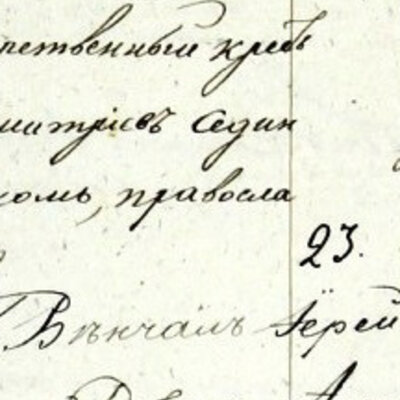 ственный кресть
митріевъ Седин
комъ, правосла
23.
Вѣнчалъ Іерей